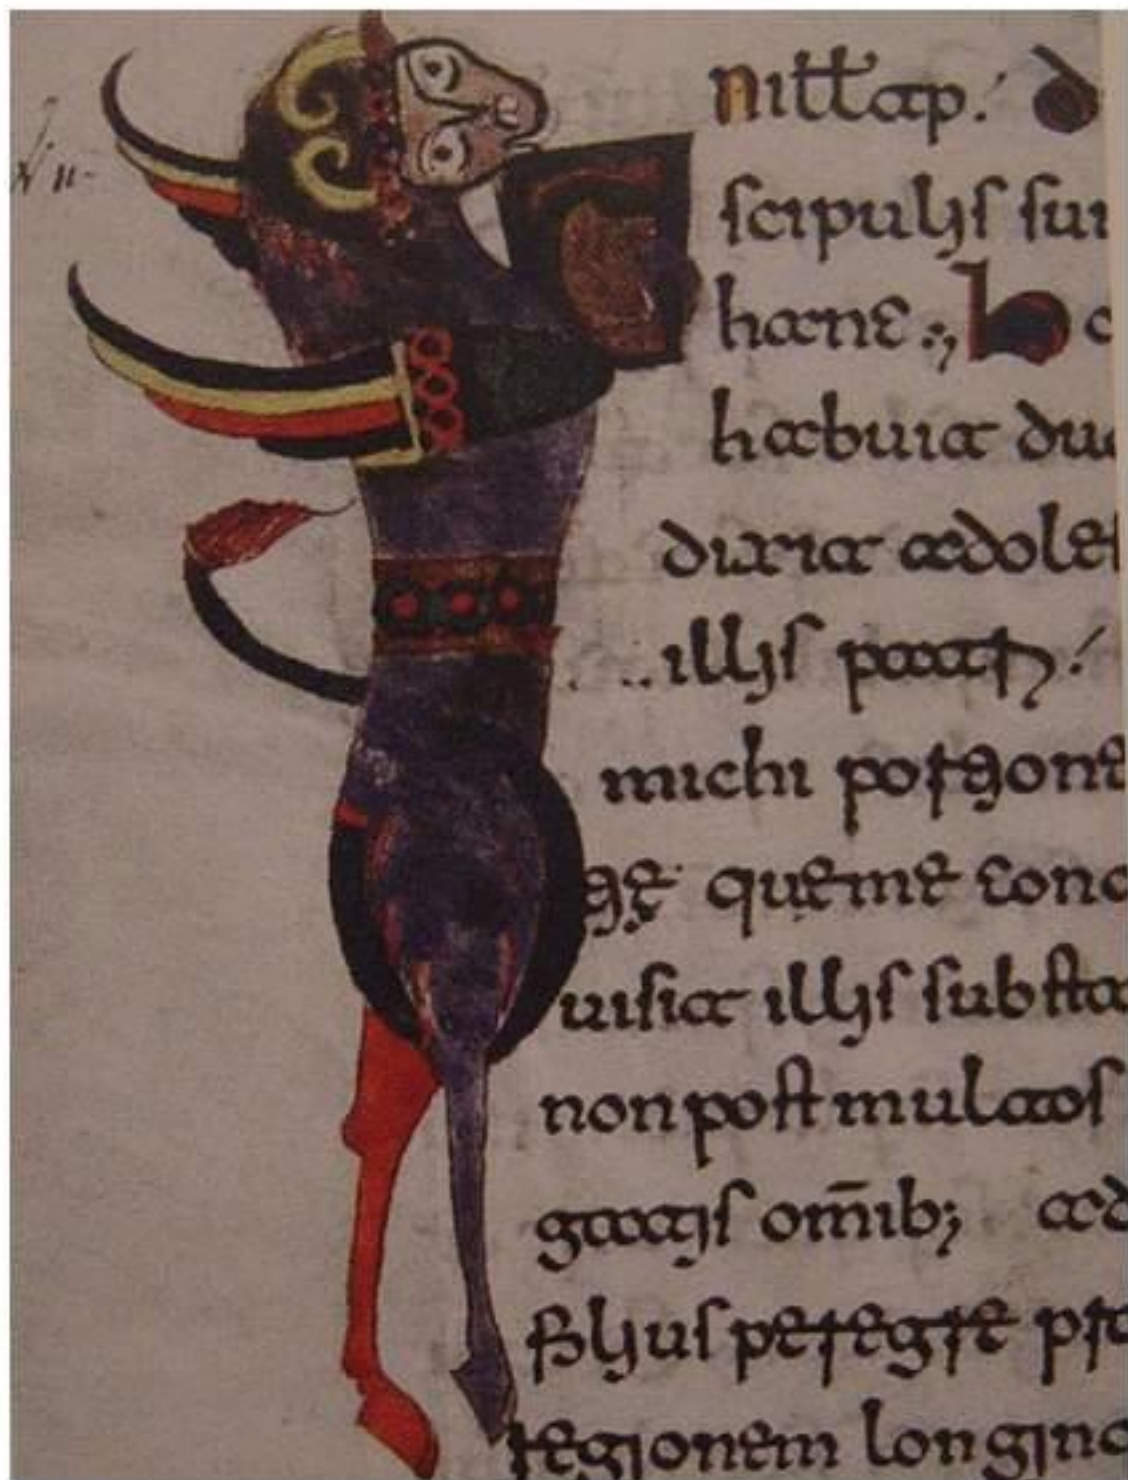 d
scipulis sui
hanc :, h
habuit duo
dixit adole
illis patri
michi portione
tię que me con
uisit illis substa
non post multos
gatis om̄ib; ad
filius peregre
regionem longinq